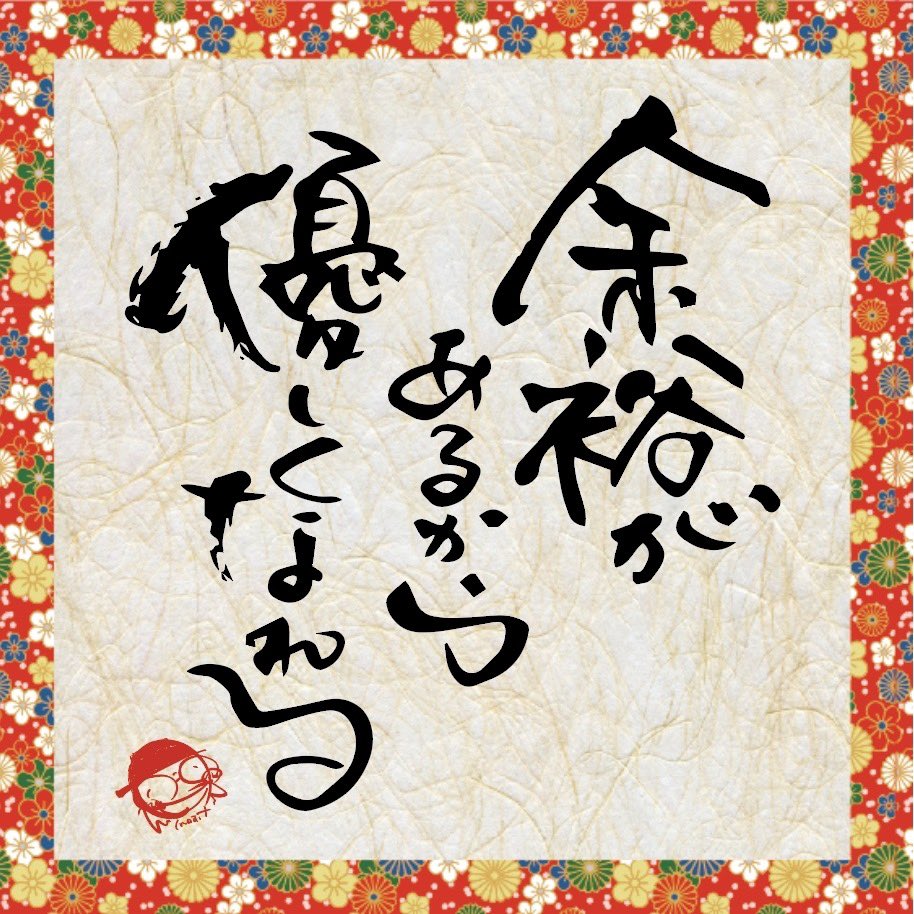 余裕が
あるから
優しくなれる